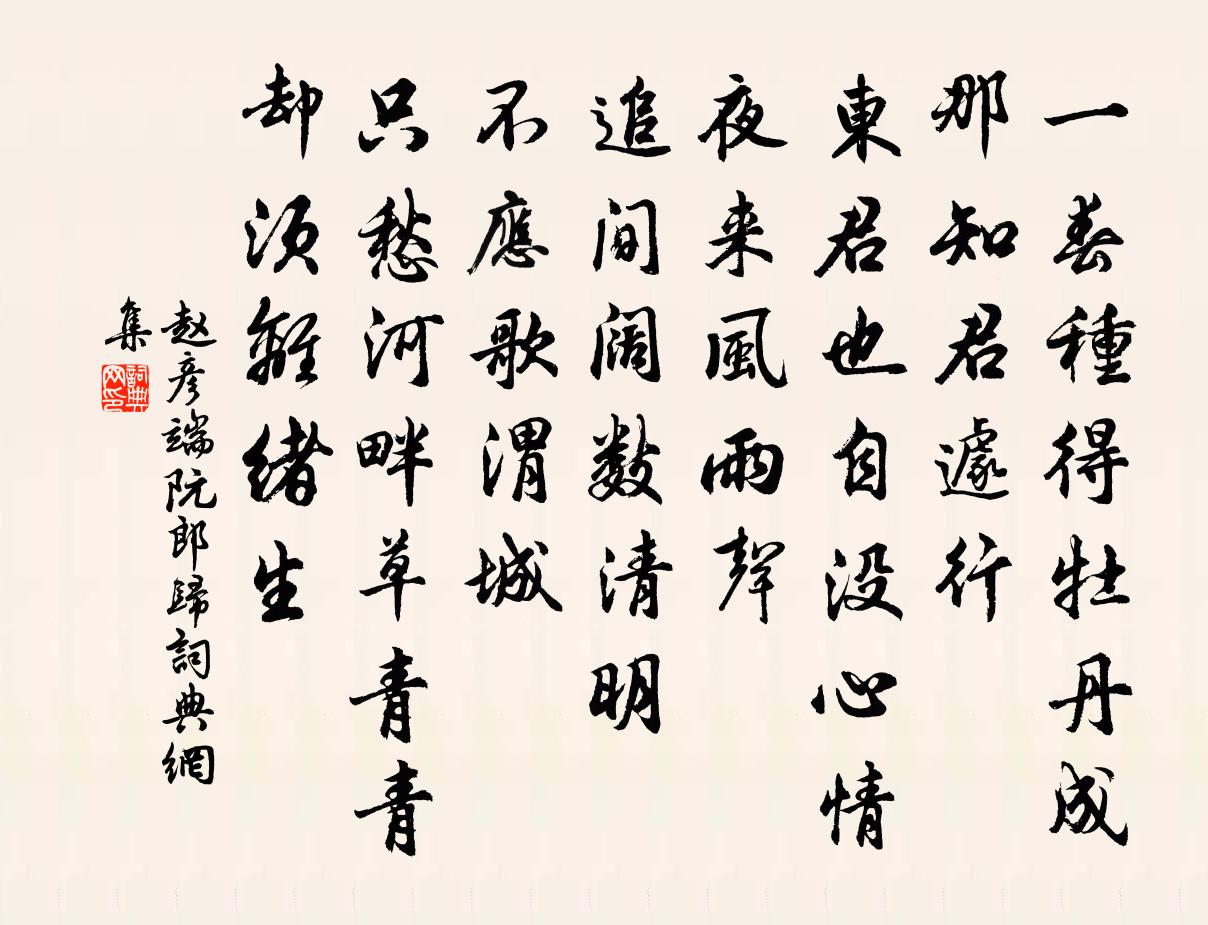 一春種得牡丹成
那知君遽行
東君也自没心情
夜来風雨聲
追間闊數清明
不應歌渭城
只愁河畔草青青
却須離緒生
赵彦端阮郎歸詞典網
集
詞典
网印